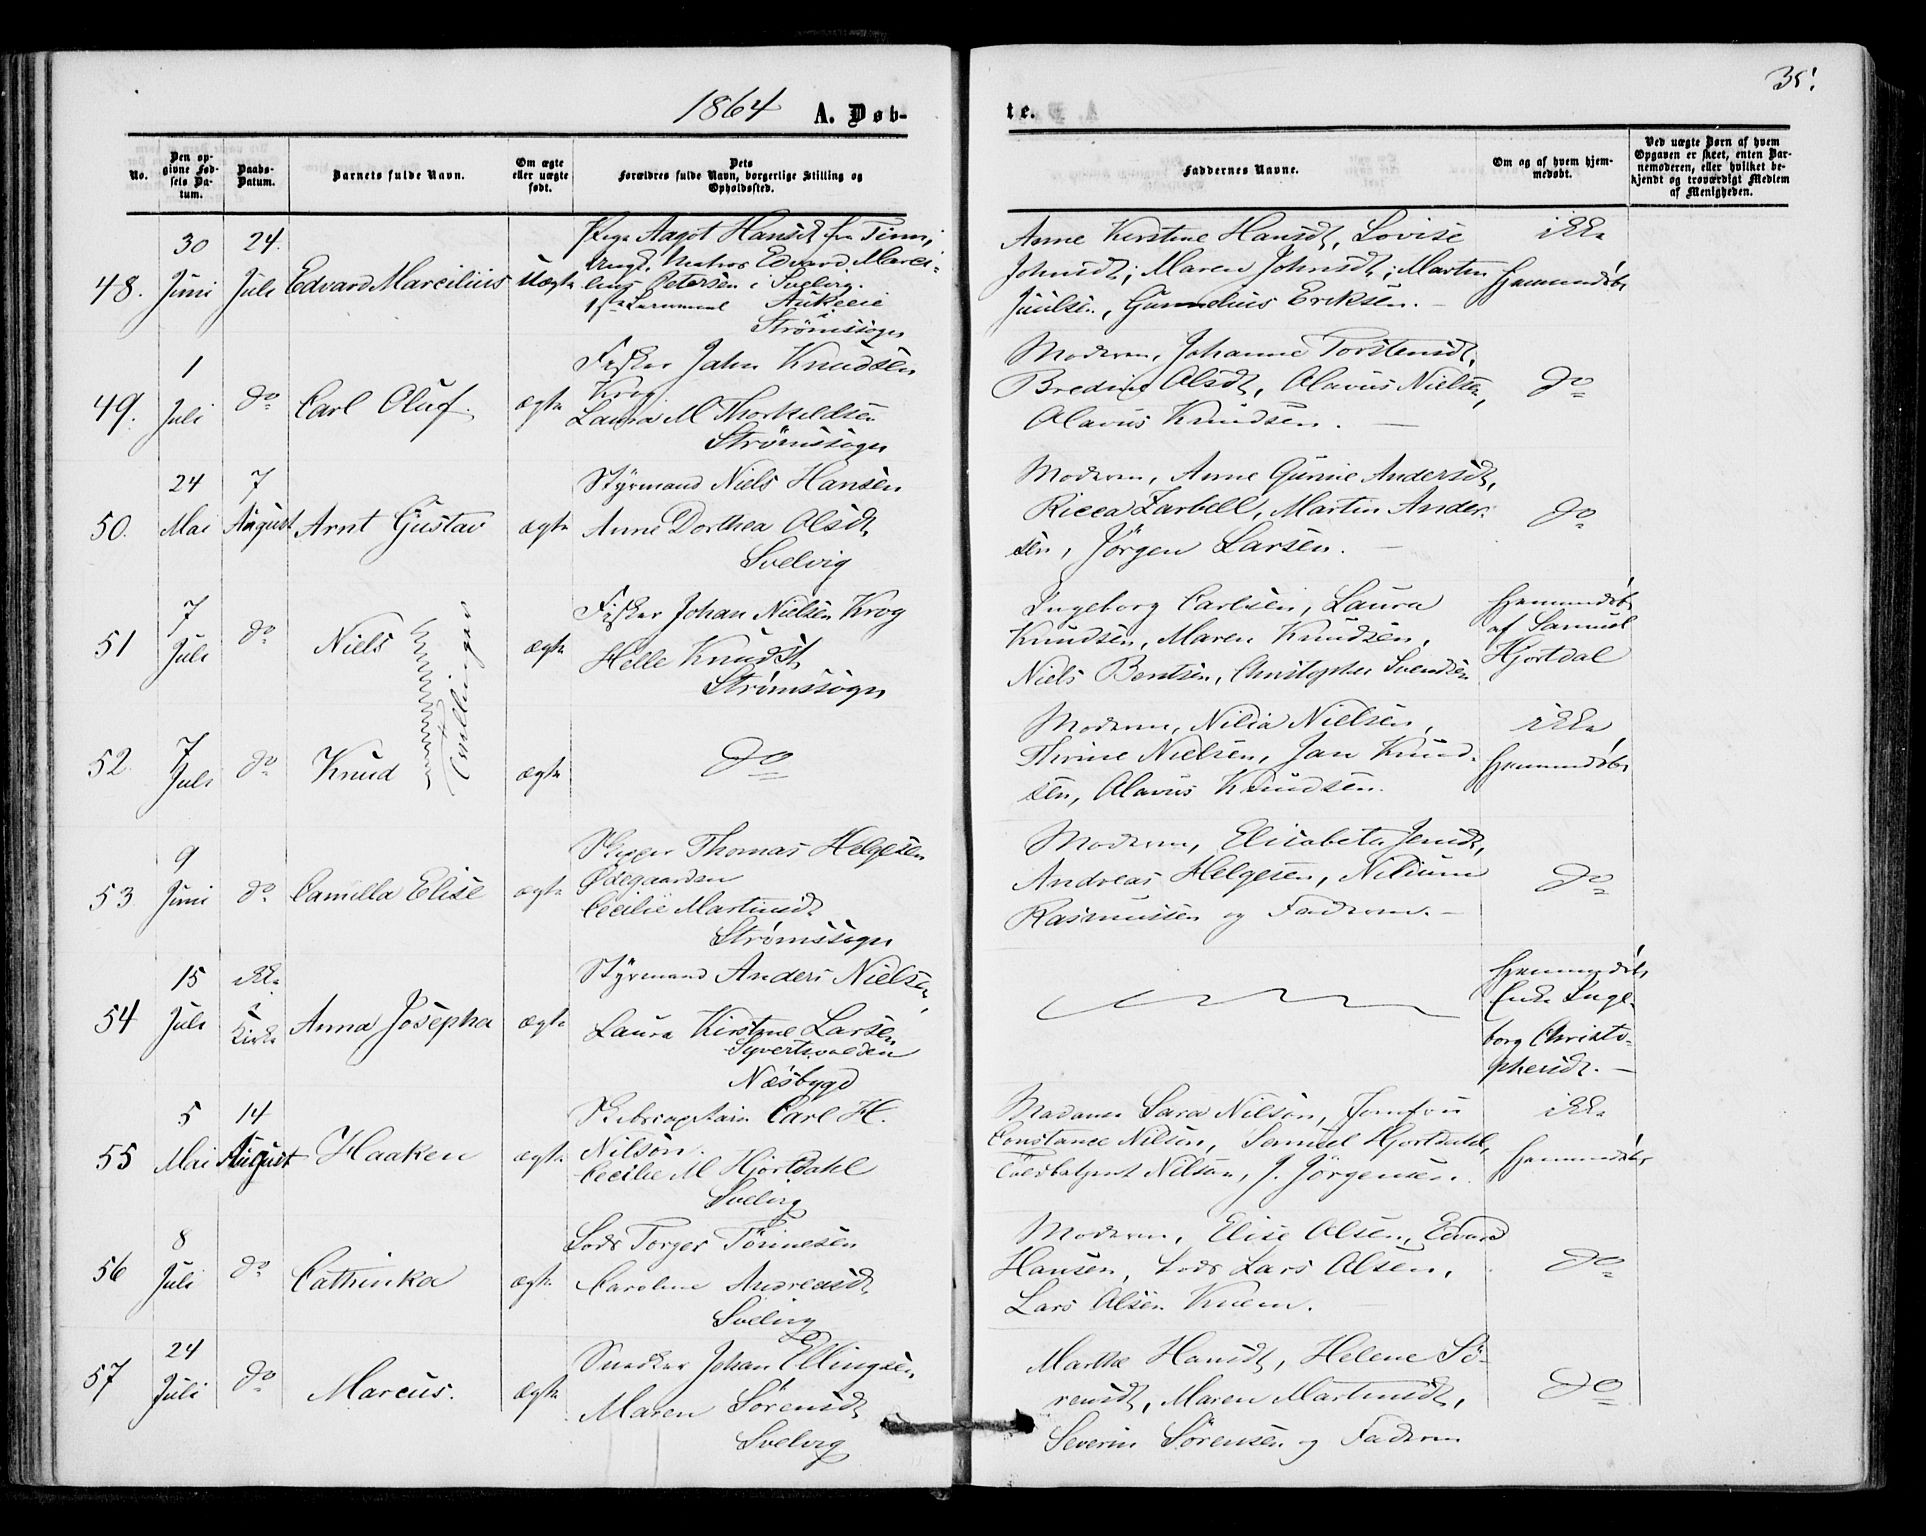 1864 A. Døb-
te.
35.
No.
Den op-
givne Fød-
sels Da-
tum.
Daabs-
Datum.
Barnets fulde Navn.
Om ægte
eller uægte
født.
Dets
Forældres fulde Navn, borgerlige Stilling og
Opholdssted.
Faddernes Navne.
Om og af hvem hjem-
medøbt.
Ved uægte Børn af hvem
Opgaven er skeet, enten Bar-
nemoderen, eller hvilket be-
kjendt og troværdigt Medlem
af Menigheden.
48.
30
Juni
24.
Juli
Edvard Marcilius
Uægte
Pige Aagot Hansdt fra Tinn,
Ungk. Matros Edvard Marci-
lius Petersen i Svelvig.
Strømssogn
Anne Kirstine Hansdt, Lovise
Johnsdt, Maren Johnsdt, Martin
Juulsen, Gunnelius Eriksen.
ikke
hjemmedøbt
49.
1
Juli
do
Carl Oluf.
ægte
Fisker Jahn Knudsen
Krog
Laura M Thorkeldsen
Strømssogn
Moderen, Johanne Torstensdt,
Bredine Olsdt, Olavus Nielsen,
Olavus Knudsen.
do
50.
24
Mai
7
August
Arnt Gustav
ægte
Styrmand Niels Hansen
Anne Dorthea Olsdt
Svelvig
Moderen, Anne Gurine Andersdt,
Ricca Zarbell, Martin Ander-
sen, Jørgen Larsen.
do
51
7
Juli
do
Niels
Tvillinger
ægte
Fisker Johan Nielsen Krog
Helle Knudsdt
Strømssogn
Ingeborg Carlsen, Laura
Knudsen, Maren Knudsen,
Niels Bentsen, Christopher Svendsen
hjemmedøbt
af Samuel
Hjortdal
52.
7
Juli
do
Knud
ægte
do
Moderen, Nilia Nielsen,
Thrine Nielsen, Jan Knud-
sen, Olavus Knudsen.
ikke
hjemmedøbt
53
9
Juni
do
Camilla Elise
ægte
Skipper Thomas Helgesen
Ødegaarden
Cecilie Martinsdt
Strømssogn
Moderen, Elisabeta Jensdt,
Andreas Helgesen,
Rasmussen og Faderen.
do
54
15
Juli
ikke
i
Kirke
Anna Josepha
ægte
Styrmand Anders Nielsen,
Laura Kirstine Larsen
Syvertsvolden
Næsbygd
hjemmedøbt
Enke Inge-
borg Christo-
phersdt.
55
5
Mai
14
August
Haaken
ægte
Skibscaptain Carl H.
Nilsøn.
Cecilie M Hjortdahl
Svelvig
Madame Sara Nilsøn, Jomfru
Constance Nilsøn, Samuel Hjortdahl,
Nilsøn, J. Jørgensen.
ikke
hjemmedøbt
56
8
Juli
do
Cathinka
ægte
Lods Torger Tønnesen
Caroline Andreasdt
Svelvig
Moderen, Elise Olsen, Edvard
Hansen, Lods Lars Olsen,
Lars Olsen Knem.
do
57
24
Juli
do
Marcus.
ægte
Snedker Johan Ellingsen,
Maren Sørensdt
Svelvig
Marthe Hansdt, Helene Sø-
rensdt, Maren Martinsdt,
Severin Sørensen og Faderen
do